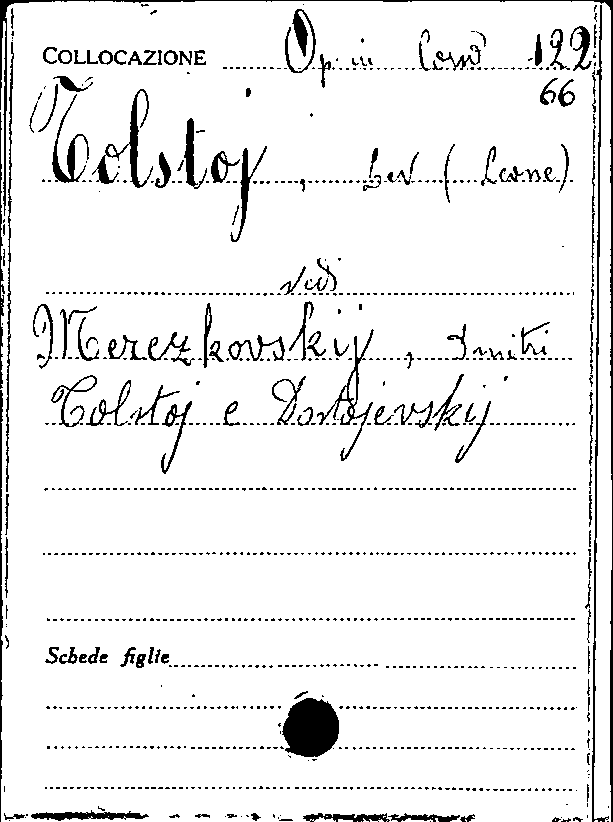 COLLOCAZIONE Op in Cons 122
66
Tolstoj, Lev (Leone)
vedi
Merezkovskij, Dmitri
Tolstoj e Dostojevskij
Schede figlie